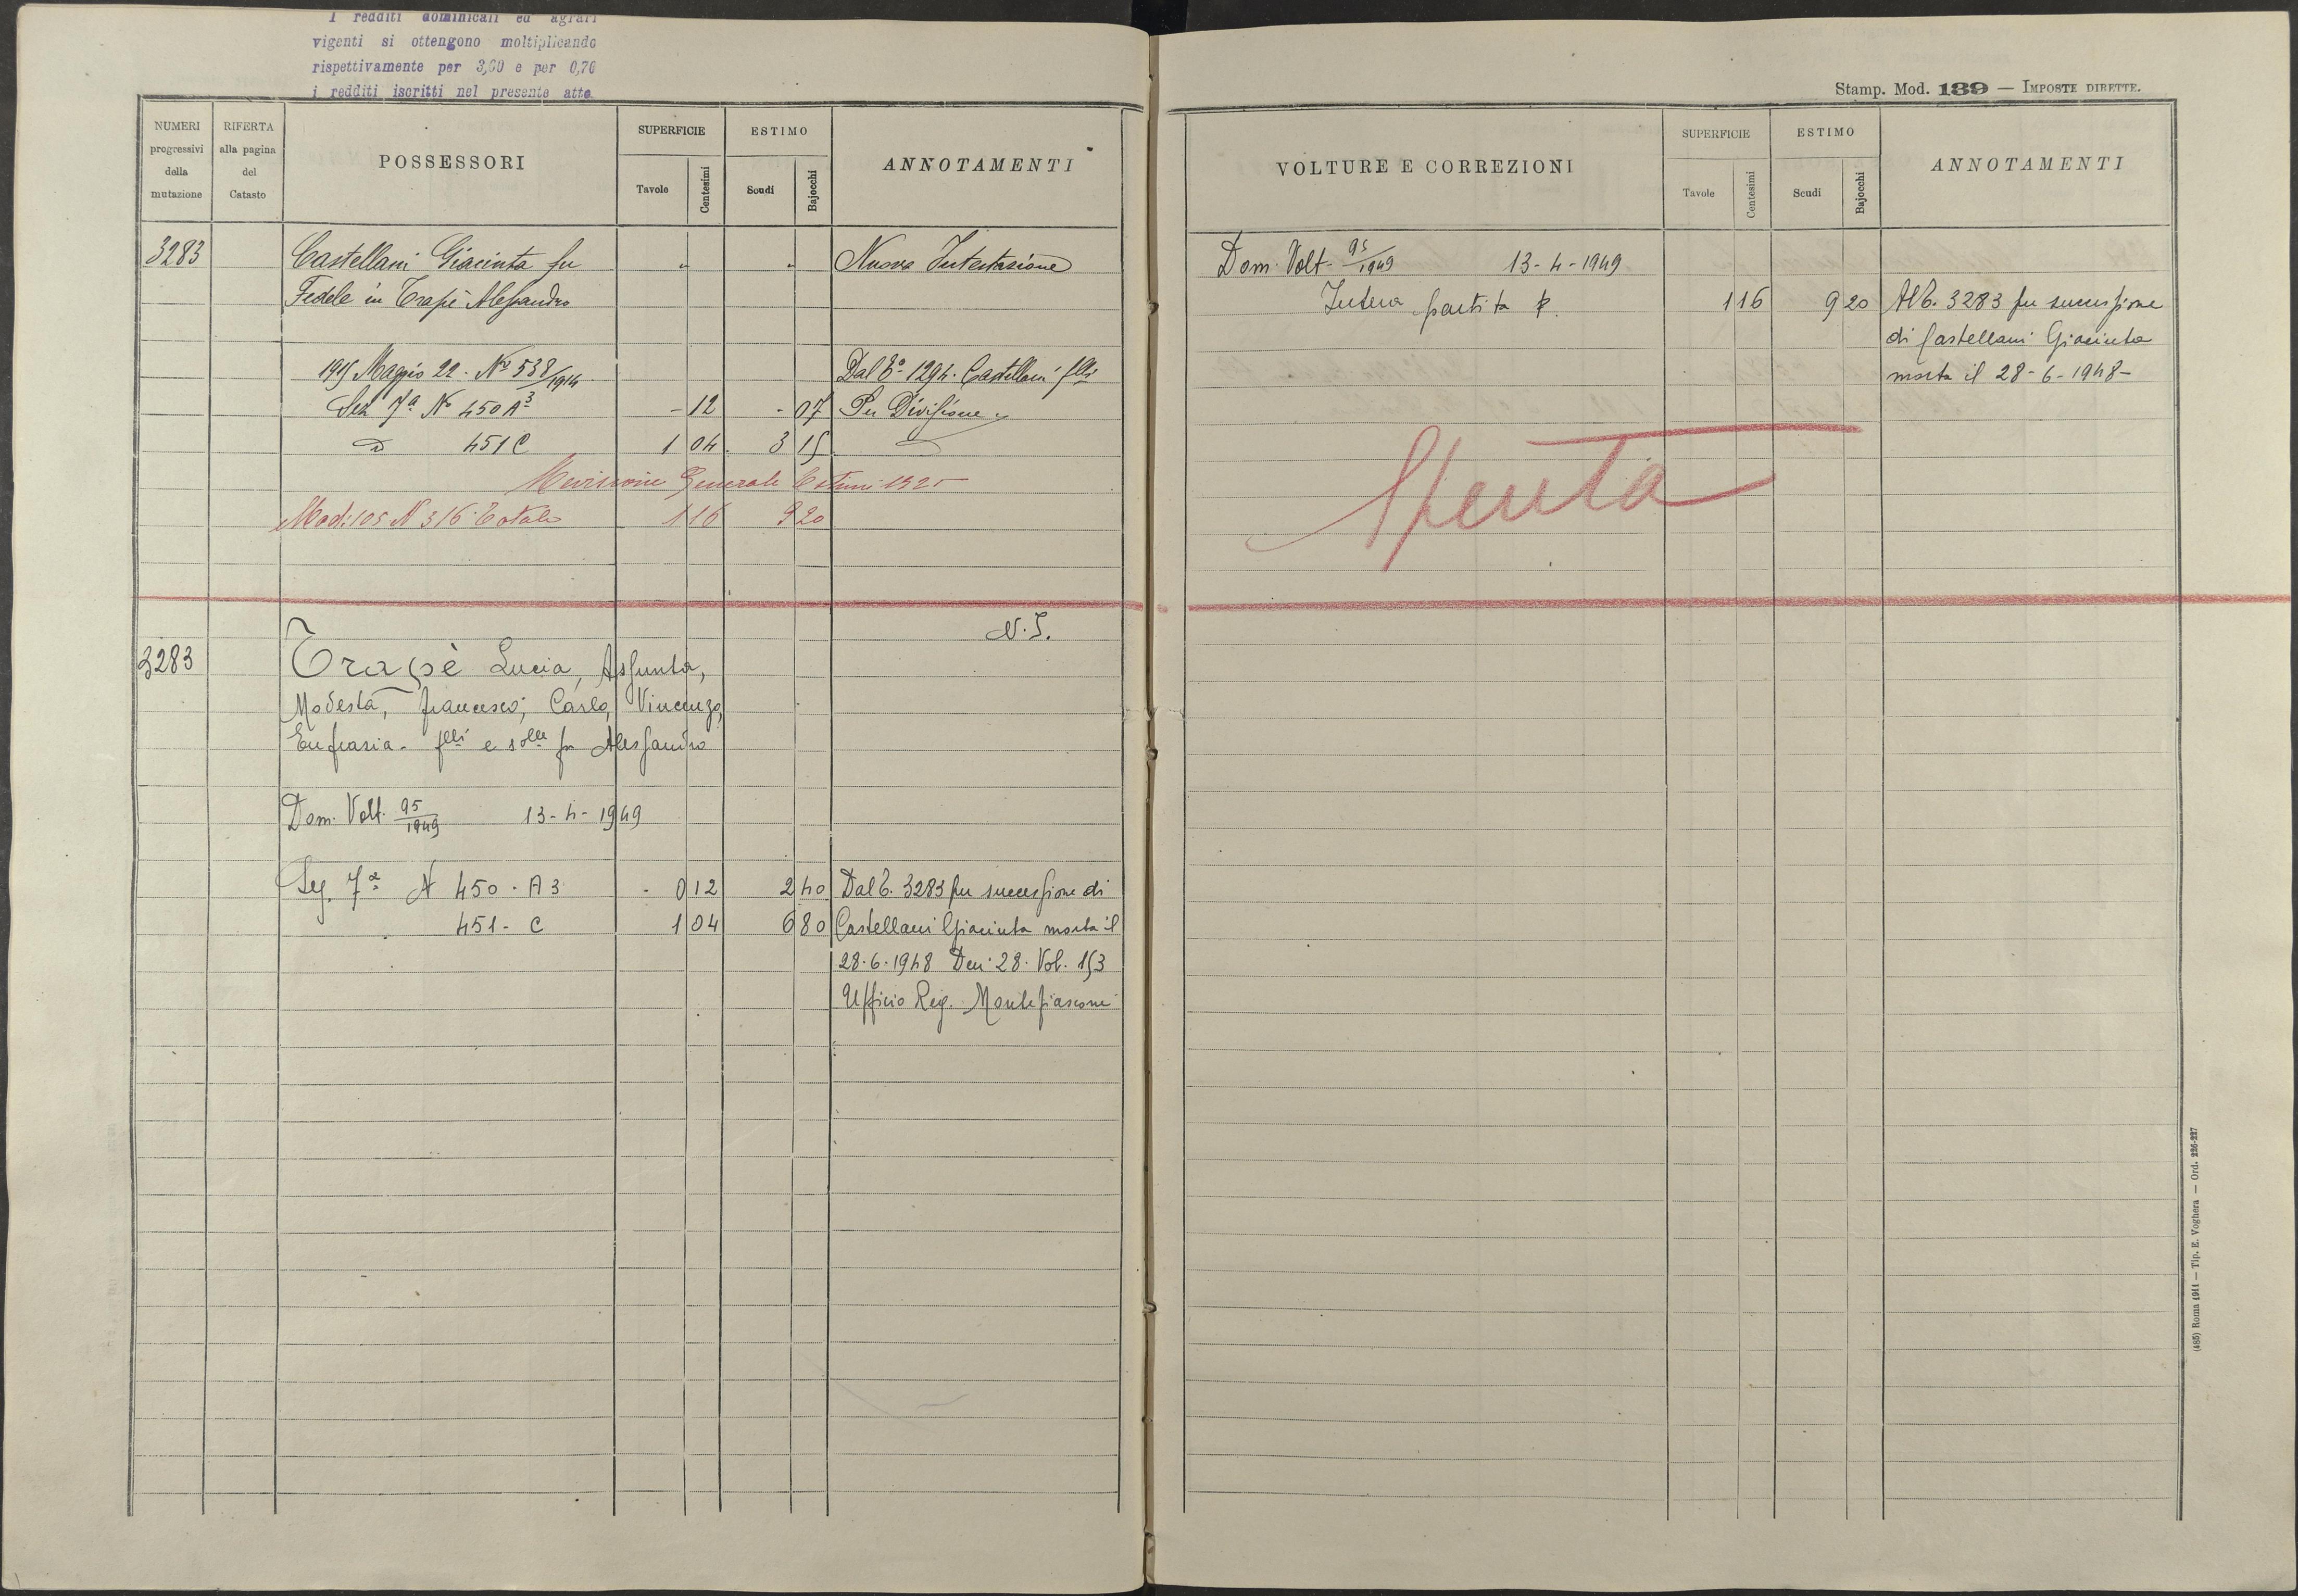 I redditi dominicali ed agrari
vigenti si ottengono moltiplicando
rispettivamente per 3,00 e per 0,70
i redditi iscritti nel presente atto.
NUMERI progressivi della mutazione
RIFERTA alla pagina del Catasto
POSSESSORI
SUPERFICIE
Tavole
Centesimi
ESTIMO
Scudi
Bajocchi
ANNOTAMENTI
3283 Castellani Giacinta fu " " Nuova Intestazione
Fedele in Trapè Alessandro
1915 Maggio 22. N° 538/1914 Dal T° 1294. Castellani f.lli
Sez 7ª N° 450 A³ - 12 - 07 Per Divisione
D 451 C 1 04 3 15
Revisione Generale Estimi 1925
Mod: 105 N 316 Totale 1 16 9 20
N. I.
3283 Trapè Lucia, Assunta,
Modesta, Francesco, Carlo, Vincenzo,
Eufrasia - f.lli e s.lle fu Alessandro
Dom. Volt. 95/1949 13-4-1949
Sez. 7ª N 450 - A3 - 0 12 2 40 Dal T. 3283 per successione di
451 - C 1 04 6 80 Castellani Giacinta morta il
28.6.1948 Den. 28. Vol. 153
Ufficio Reg. Montefiascone
Stamp. Mod. 139 — IMPOSTE DIRETTE.
VOLTURE E CORREZIONI
SUPERFICIE
Tavole
Centesimi
ESTIMO
Scudi
Bajocchi
ANNOTAMENTI
Dom. Volt. 95/1949 13-4-1949
Intera partita 1 16 9 20 Al T. 3283 per successione
di Castellani Giacinta
morta il 28-6-1948-
Spenta
(485) Roma 1911 — Tip. E. Voghera — Ord. 226-227